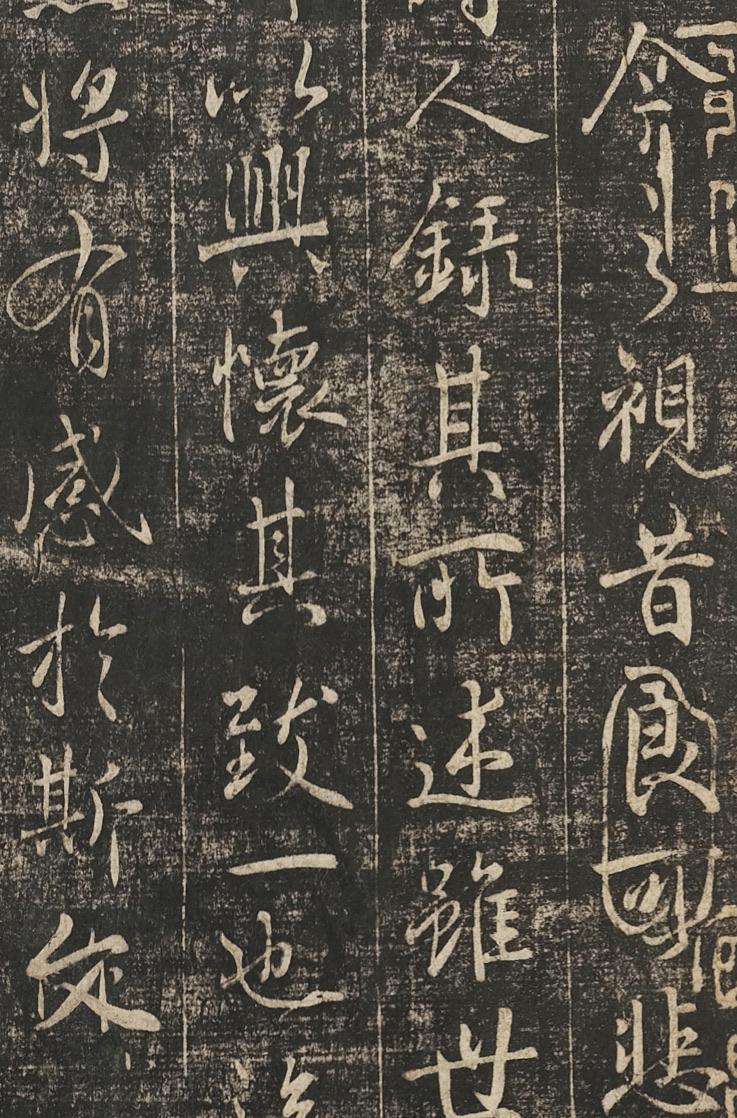 今之視昔良可悲
人錄其所述雖世
以興懷其致一也
將有感於斯文